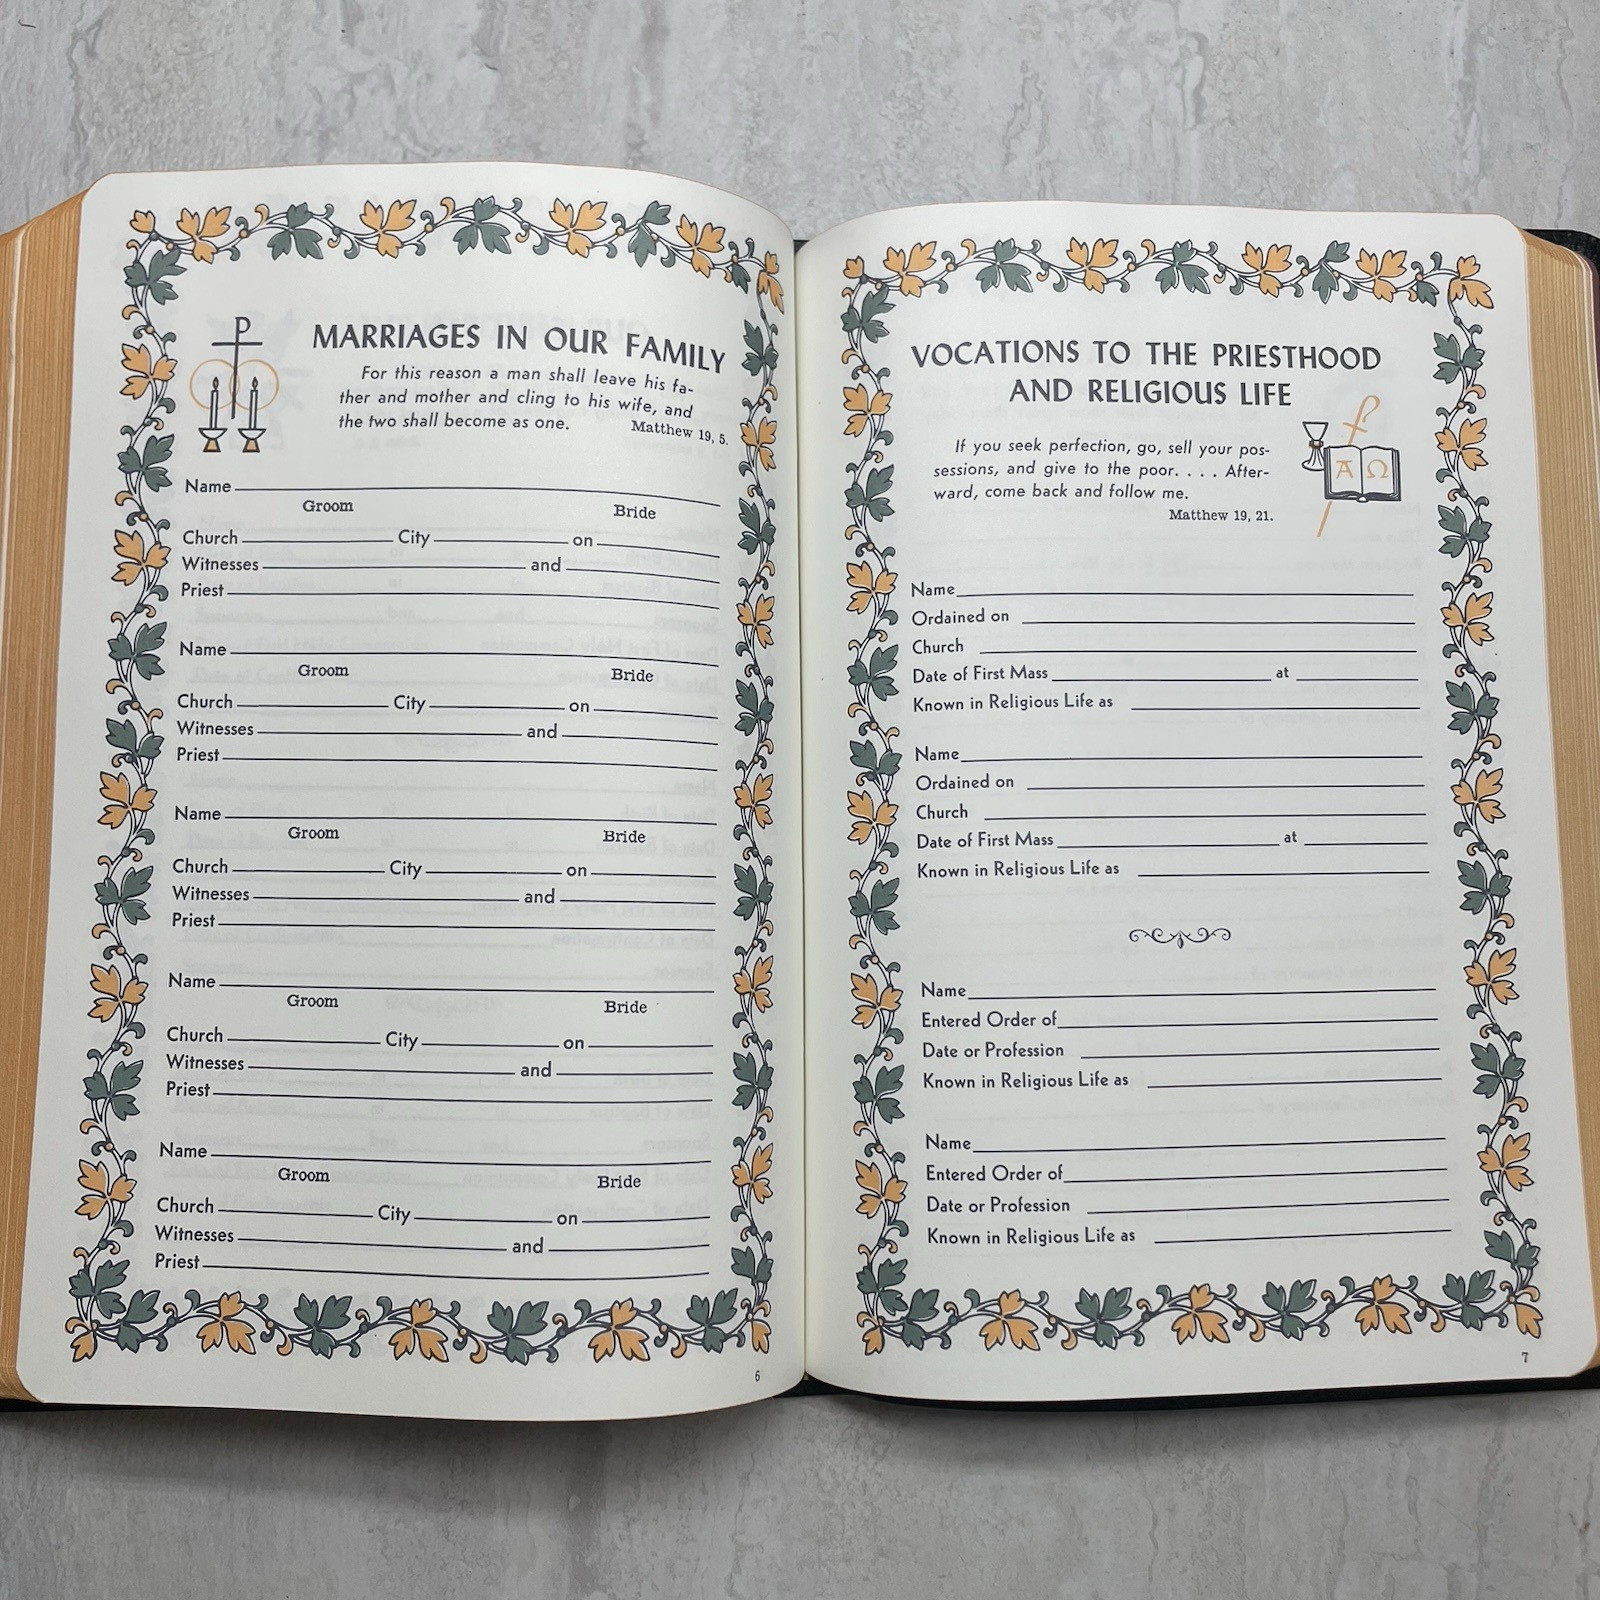 MARRIAGES IN OUR FAMILY
For this reason a man shall leave his fa-
ther and mother and cling to his wife, and
the two shall become as one. Matthew 19, 5.
Name
Groom Bride
Church City on
Witnesses and
Priest
Name
Groom Bride
Church City on
Witnesses and
Priest
Name
Groom Bride
Church City on
Witnesses and
Priest
Name
Groom Bride
Church City on
Witnesses and
Priest
Name
Groom Bride
Church City on
Witnesses and
Priest
6
VOCATIONS TO THE PRIESTHOOD
AND RELIGIOUS LIFE
If you seek perfection, go, sell your pos-
sessions, and give to the poor. . . . After-
ward, come back and follow me.
Matthew 19, 21.
Α Ω
Name
Ordained on
Church
Date of First Mass at
Known in Religious Life as
Name
Ordained on
Church
Date of First Mass at
Known in Religious Life as
Name
Entered Order of
Date or Profession
Known in Religious Life as
Name
Entered Order of
Date or Profession
Known in Religious Life as
7